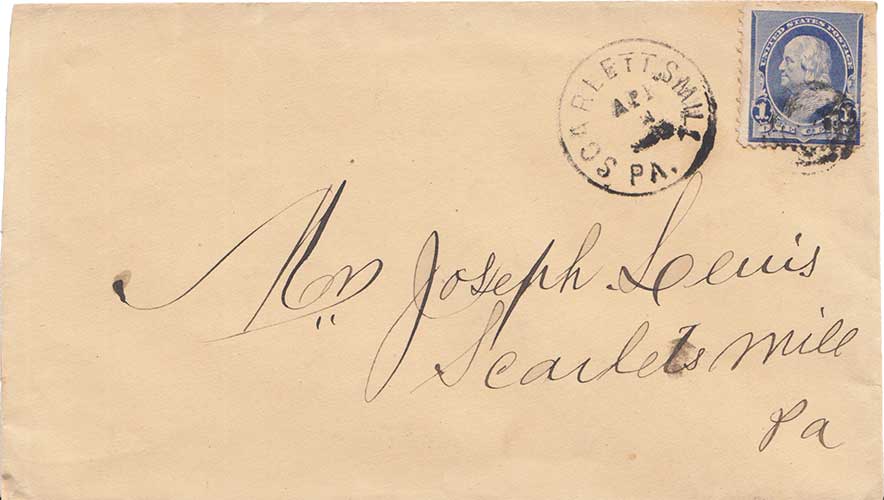 SCARLETTSMILL
APR
PA.
UNITED STATES POSTAGE
1 1
ONE CENT
Mr Joseph Lewis
Scarlets Mill
Pa